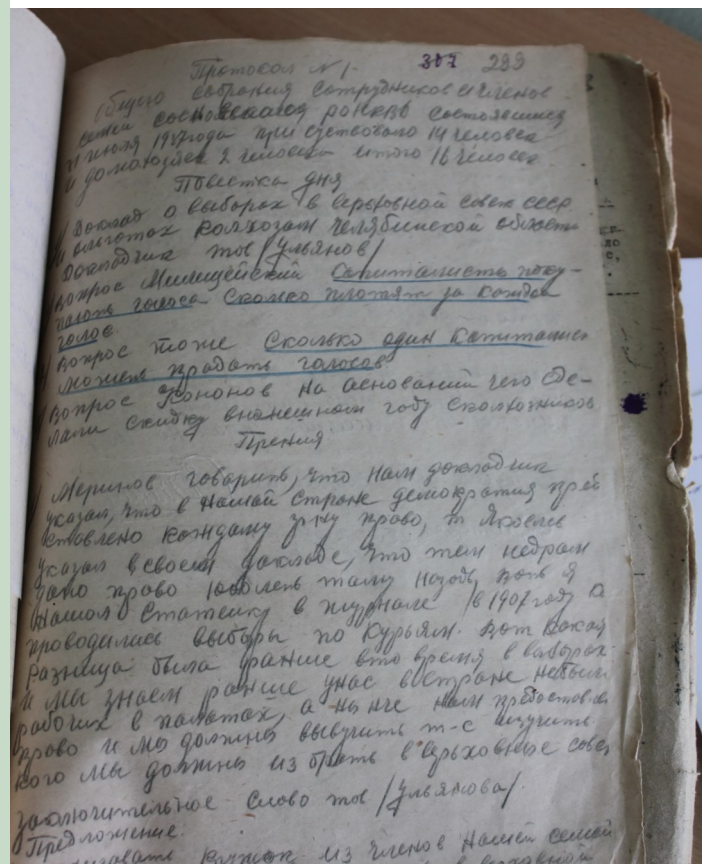 307 299
Протокол №1-
Общего собрания сотрудников и членов
семей сосновского РОНКВД состоявшиеся
21 июля 1937 года присутствовало 14 человек
и домохозяек 2 человека итого 16 человек
Повестка дня
Доклад о выборах в верховной совет СССР
и льготах колхозам Челябинской области
Докладчик тов /Ульянов/
Вопрос капиталисты поку-
пают голоса сколько платят за каждый
голос
Вопрос тоже Сколько один капиталист
может продать голосов
Вопрос Кононов на основании чего сде-
лали скидку в нынешном году с колхозников
Прения
Меринов говорить, что нам докладчик
указал, что в нашей стране демократия
каждому право, т Яковлев
указал в своем докладе, что тем
дано право тому назад, вот я
нашол статейку в журнале /в 1907 году
проводились выборы по курьям. вот какая
разница была раньше в то время в выборах
и мы знаем раньше у нас в стране небыли
рабочих в палатах, а нынче нам предоставлен
право и мы должны выучить т-с изучить
кого мы должны избрать в верьховные совет
заключительное слово тов /Ульянова/
Предложение.
кружок из членов нашей семьи